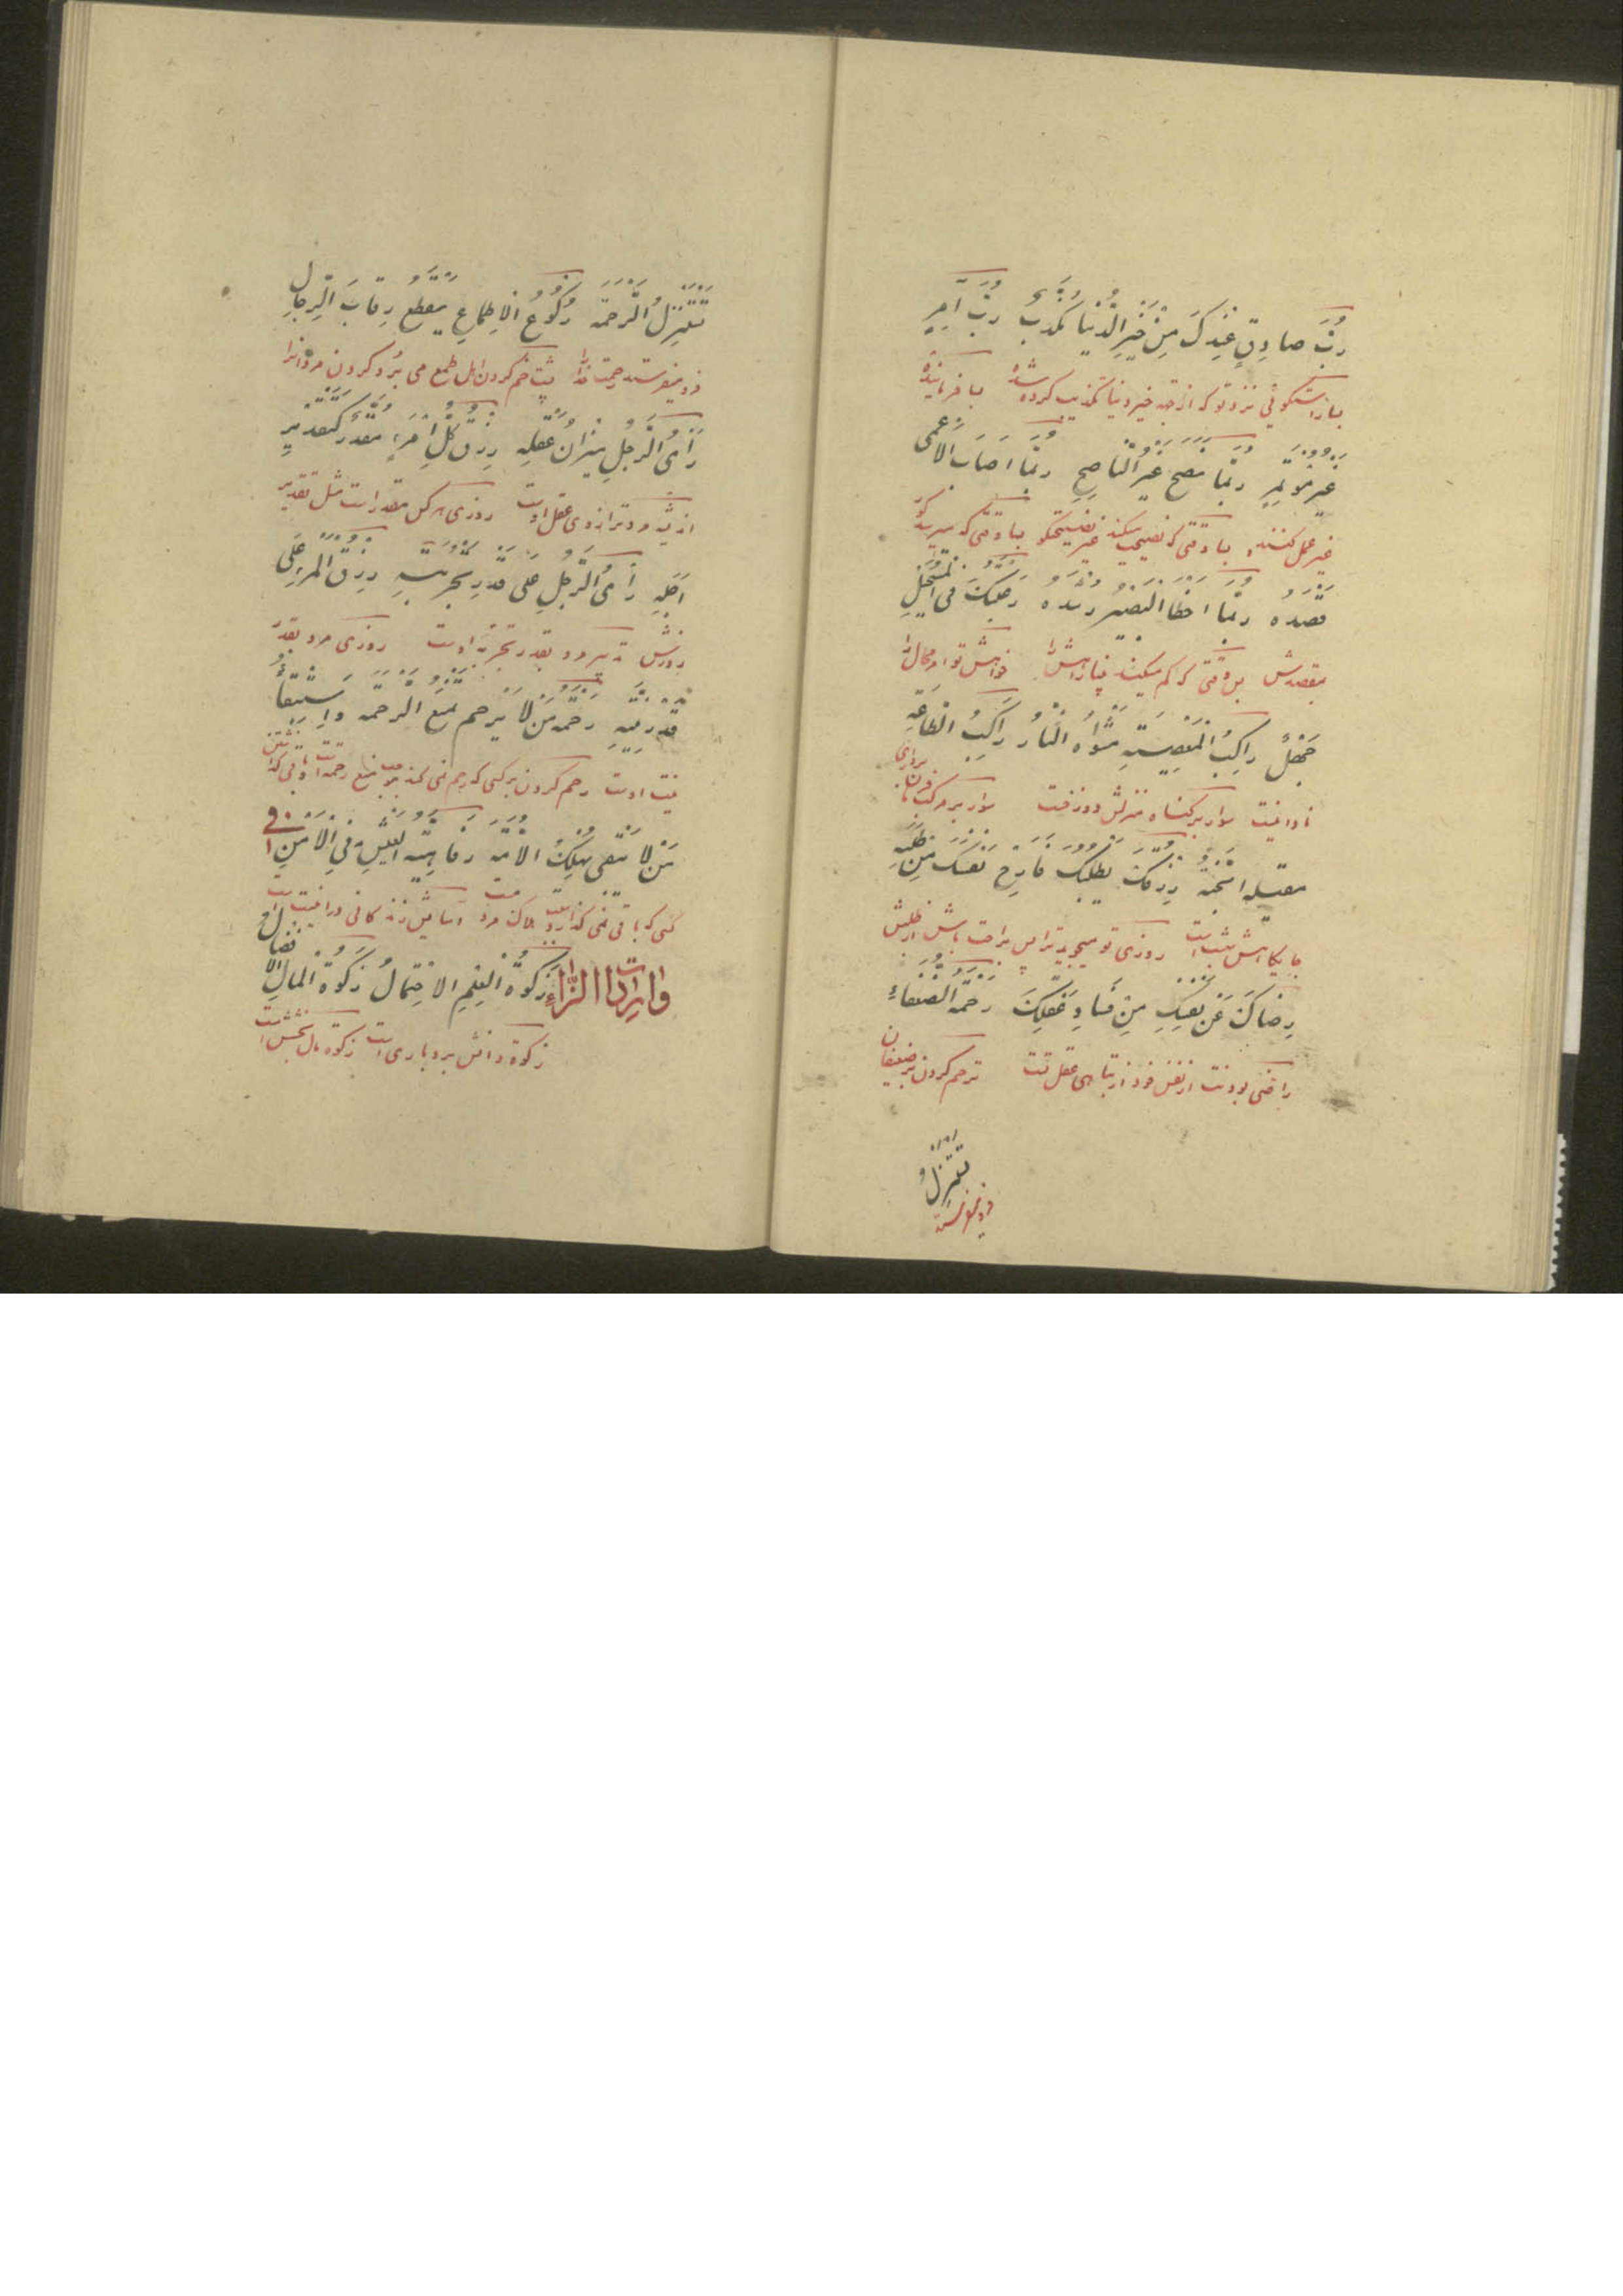 رُبَّ صادِقٍ عِنْدَكَ مِنْ خَيْرِ الدُّنْيا مُكَذَّبٌ رُبَّ آمِرٍ
بسا راستگوئی نزد تو که از جهة خیر دنیا تکذیب کرده شده بسا فرماینده
غَيْرُ مُؤْتَمِرٍ رُبَّما نَصَحَ غَيْرُ النّاصِحِ رُبَّما اَصابَ الْاَعْمى
غیر عمل کننده بسا وقتی که نصیحت میکند غیر نصیحتگو بسا وقتی که میرسد کور
قَصْدَهُ رُبَّما اَخْطَأَ الْبَصيرُ رُشْدَهُ رَغْبَتُكَ فِى الْمُسْتَحيلِ
بمقصدش بسا وقتی که کم میکند بینا راهش را خواهش تو امر محال را
جَهْلٌ راكِبُ الْمَعْصِيَةِ مَثْواهُ النّارُ راكِبُ الطّاعَةِ
نادانیست سوار بر گناه منزلش دوزخست سوار بر مرکب فرمان برداری
مَقيلُهُ الْجَنَّةُ رِزْقُكَ يَطْلُبُكَ فَاَرِحْ نَفْسَكَ مِنْ طَلَبِهِ
جایگاهش بهشت است روزی تو میجوید ترا پس براحت باش از طلبش
رِضاكَ عَنْ نَفْسِكَ مِنْ فَسادِ عَقْلِكَ رَحْمَةُ الضُّعَفاءِ
راضی بودنت از نفس خود از تباهی عقل تست ترحم کردن بر ضعیفان
تَسْتَنْزِلُ
فرو میفرستد
تَسْتَنْزِلُ الرَّحْمَةَ رُكُوعُ الْاَطْماعِ يُقَطِّعُ رِقابَ الرِّجالِ
فرو میفرستد رحمت خدا را پشت خم کردن اهل طمع می برد گردن مردانرا
رَأْىُ الرَّجُلِ ميزانُ عَقْلِهِ رِزْقُ كُلِّ امْرِءٍ مُقَدَّرٌ كَتَقْديرِ
اندیشه مرد ترازوی عقل اوست روزی هر کس مقدر است مثل تقدیر
اَجَلِهِ رَأْىُ الرَّجُلِ عَلى قَدْرِ تَجْرِبَتِهِ رِزْقُ الْمَرْءِ عَلى
تدبیر مرد بقدر تجربه اوست روزی مرد بقدر
قَدْرِ نِيَّتِهِ رَحْمَةُ مَنْ لا يَرْحَمُ تَمْنَعُ الرَّحْمَةَ وَاسْتِبْقاءُ
نیت اوست رحم کردن بر کسی که رحم نمی کند موجب منع رحمت است و باقی گذاشتن
مَنْ لا يُبْقى يُهْلِكُ الْاُمَّةَ رَفاهِيَّةُ الْعَيْشِ فِى الْاَمْنِ
کسی که باقی نمی گذارد هلاک امت آسایش زندگانی در امنیت است
وَاِيرادُ الزّاءِ زَكوةُ الْعِلْمِ الْاِحْتِمالُ زَكوةُ الْمالِ الْاِفْضالُ
زکوة دانش بردباری است زکوة مال بخشش است